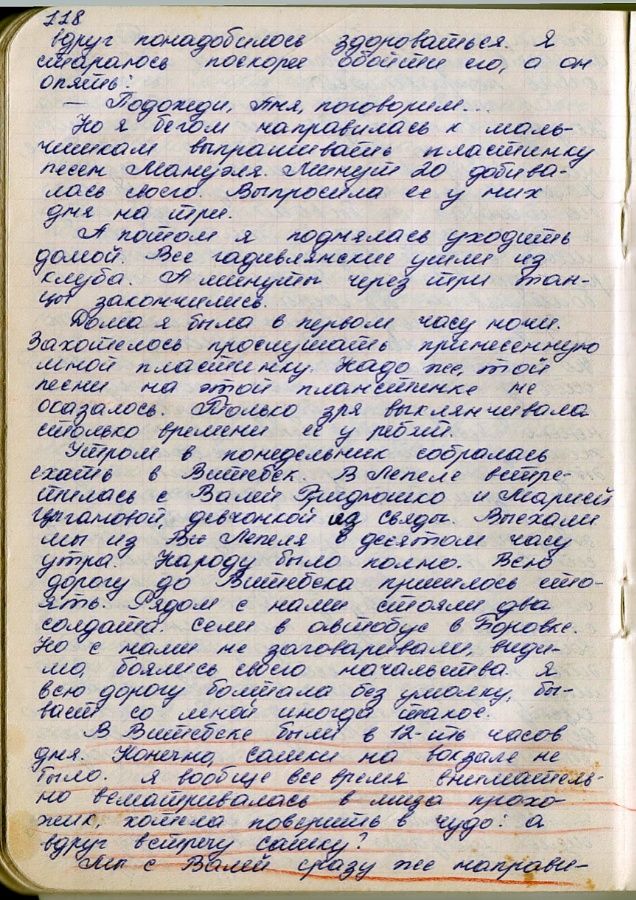 118
вдруг понадобилось здороваться. Я
стараюсь поскорее обойти его, а он
опять:
— Подожди, Аня, поговорим...
Но я бегом направилась к маль-
чишкам выпрашивать пластинку
песен Мануэля. Минут 20 добива-
лась своего. Выпросила ее у них
дня на три.
А потом я поднялась уходить
домой. Все гадивлянские ушли из
клуба. А минуты через три тан-
цы закончились.
Дома я была в первом часу ночи.
Захотелось прослушать принесенную
мной пластинку. Надо же, той
песни на этой планстинке не
оказалось. Только зря выклянчивала
столько времени ее у ребят.
Утром в понедельник собралась
ехать в Витебск. В Лепеле встре-
тилась с Валей и Марией
Цыгановой, девчонкой из свяды. Выехали
мы из Лепеля в десятом часу
утра. Народу было полно. Всю
дорогу до Витебска пришлось сто-
ять. Рядом с нами стояли два
солдата. Сели в автобус в Боровке.
Но с нами не заговаривали, види-
мо, боялись своего начальства. Я
всю дорогу болтала без умолку, бы-
вает со мной иногда такое.
В Витебске были в 12-ть часов
дня. Конечно, сашки на вокзале не
было. Я вообще все время вниматель-
но всматривалась в лица прохо-
жих, хотела поверить в чудо: а
вдруг встречу сашку?
Мы с Валей сразу же направи-